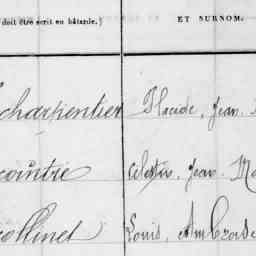 doit être écrit en bâtarde.) ET SURNOM.
charpentier Placide, Jean
cointre Celestin, Jean
collinet Louis, Ambroise